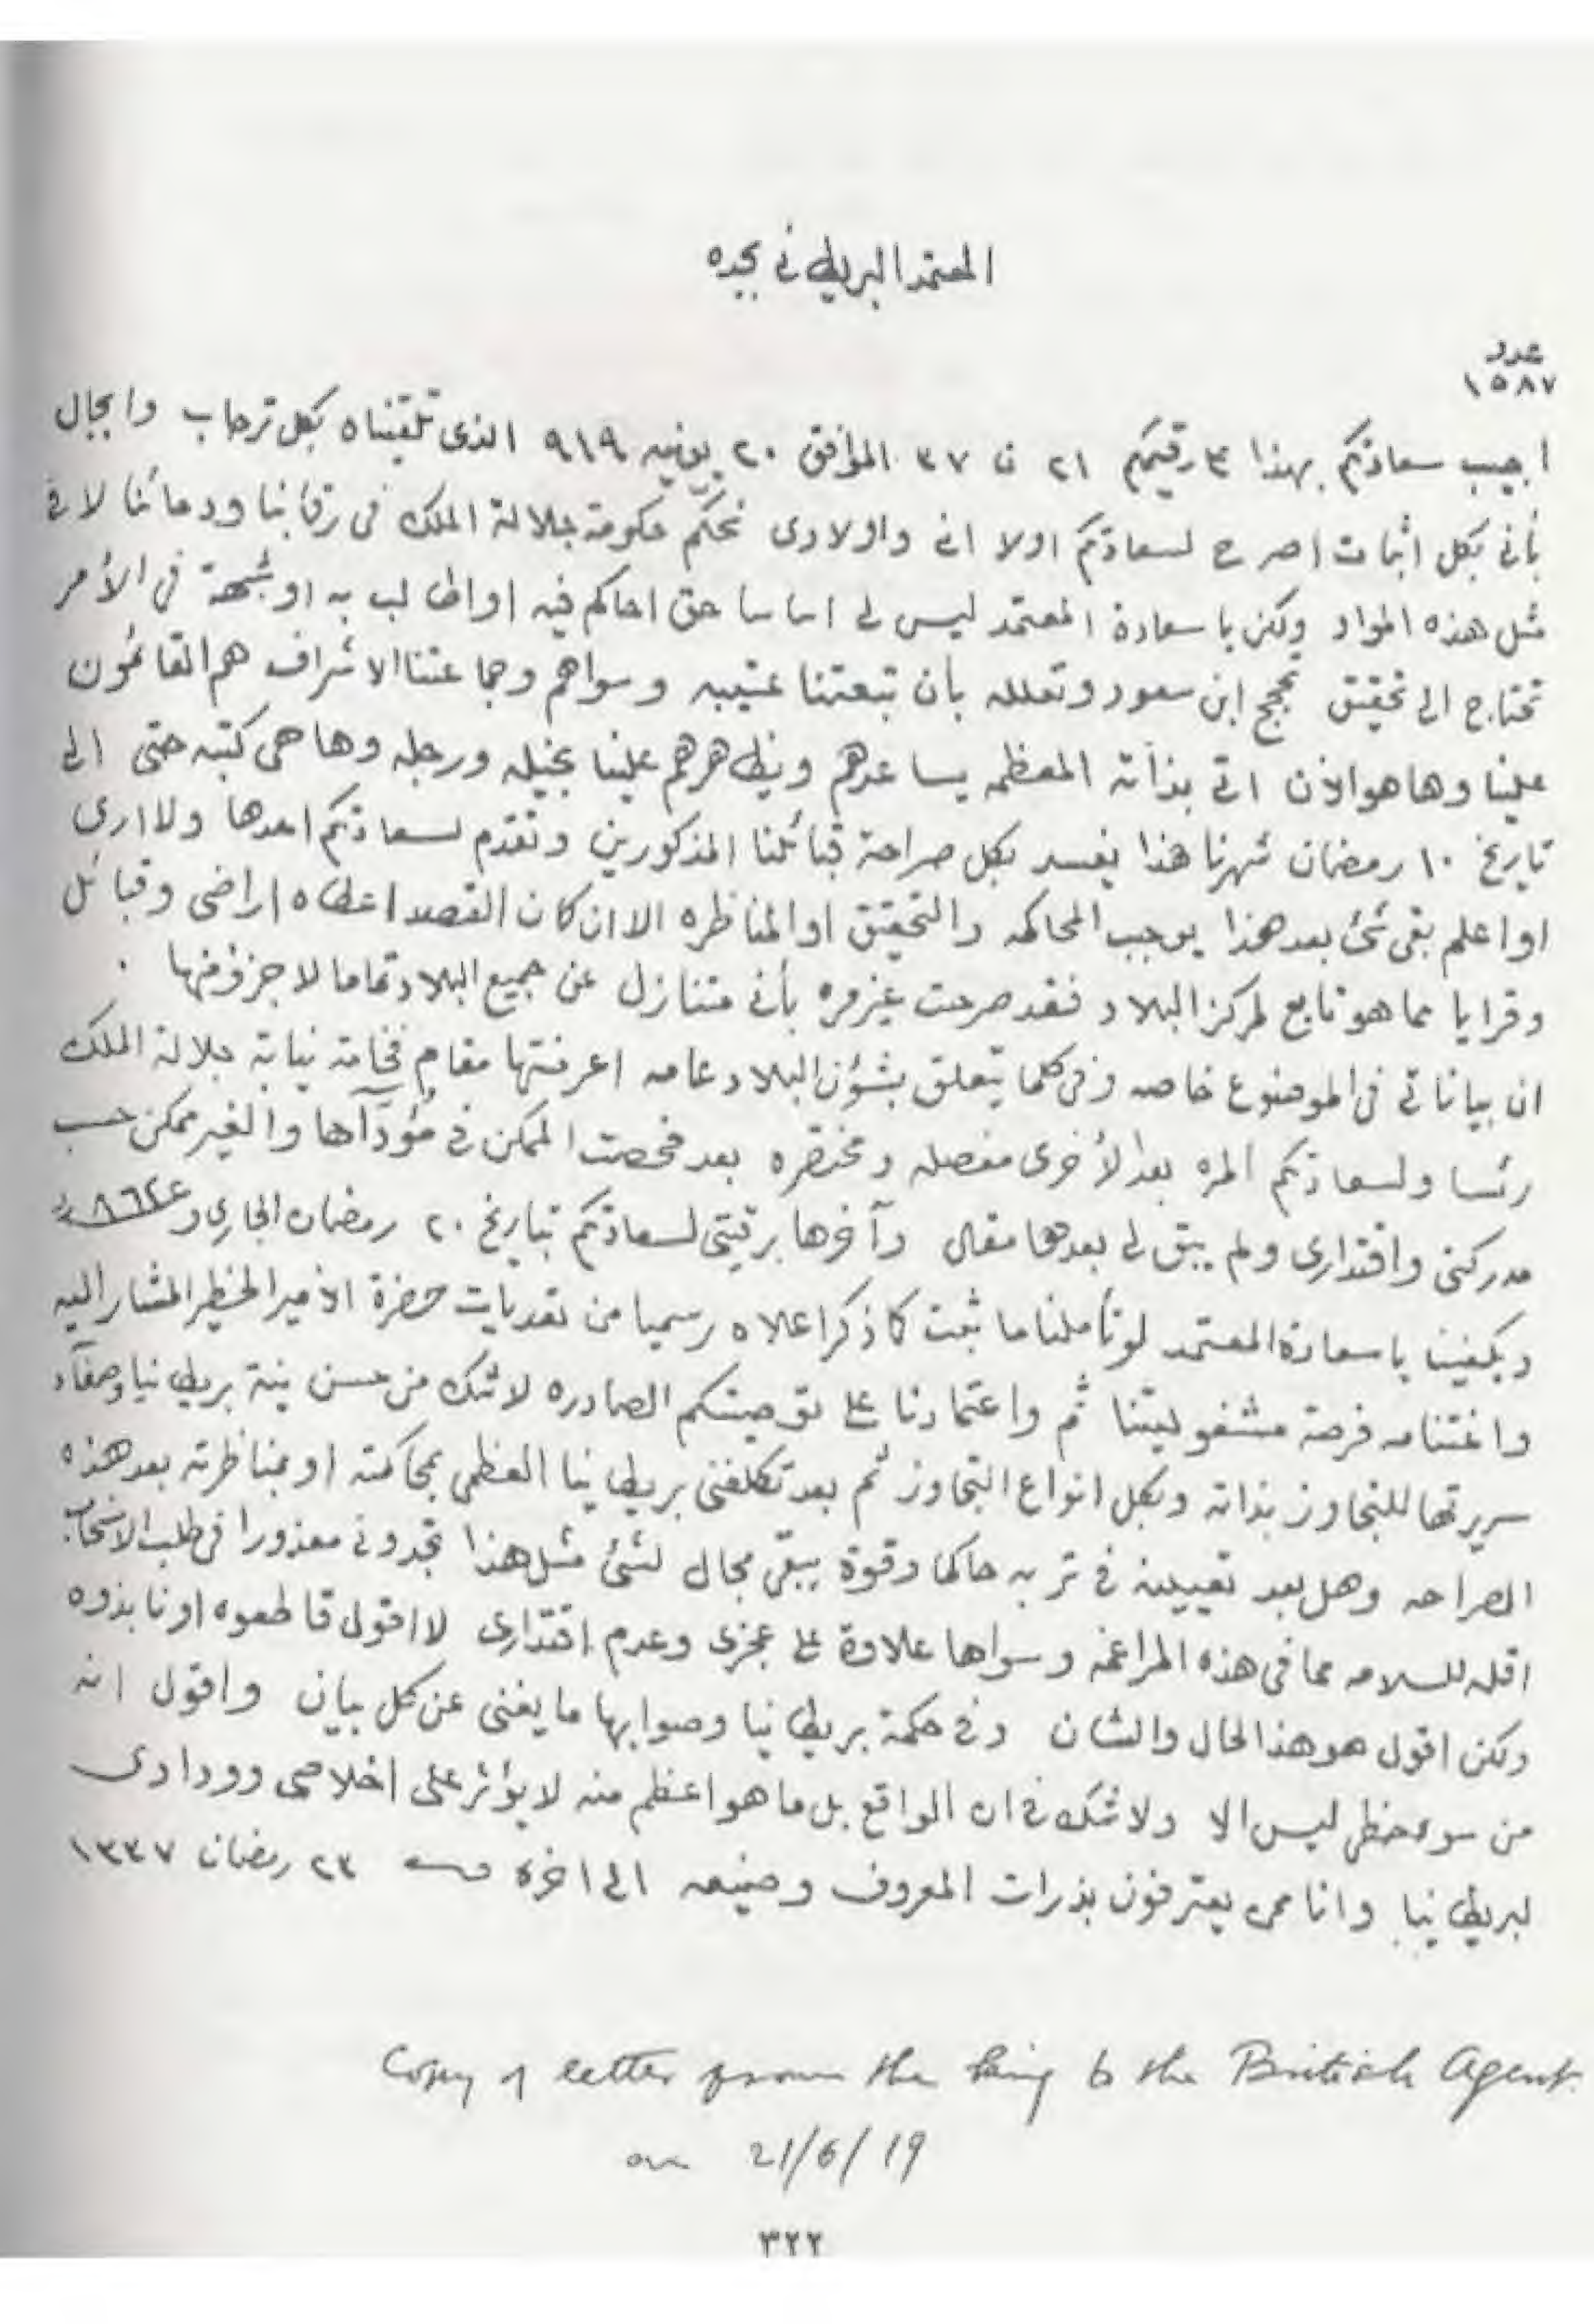 المعتمد البريطاني بجده
عدد
١٥٨٧
اجيب سعادتكم بهذا رقيمكم ٢١ ن ٣٧ الموافق ٢٠ يونيه ٩١٩ الذى تلقيناه بكل ترحاب واجلال
بأنى بكل اثبات اصرح لسعادتكم اولا انى واولادى نحكم حكومة جلالة الملك فى رقابنا ودمائنا لا فى
مثل هذه المواد ولكن يا سعادة المعتمد ليس لى اساسا حق احاكم فيه او اطالب به او شبهة فى الأمر
تحتاج الى تحقيق حجج ابن سعود وتعلله بأن تبعتنا عتيبه وسواهم وجماعتنا الاشراف هم القائمون
علينا وها هو الأن اتى بذاته المعظمه يساعدهم ويظاهرهم علينا بخيله ورجله وها هى كتبه حتى الى
تاريخ ١٠ رمضان شهرنا هذا يفسد بكل صراحة قبائلنا المذكورين ونقدم لسعادتكم احدها ولا ارى
او اعلم بقى شئ بعد هذا يوجب المحاكمه والتحقيق او المناظره الا ان كان القصد اعطاه اراضى وقبائل
وقرايا مما هو تابع لمركز البلاد فقد صرحت غير مره بأنى متنازل عن جميع البلاد تماما لا جزؤ منها .
ان بياناتى فى الموضوع خاصه وفى كلما يتعلق بشؤن البلاد عامه اعرفتها مقام فخامة نيابة جلالة الملك
رئسا ولسعادتكم المره بعد الأخرى مفصله ومختصره بعد فحصت الممكن فى مؤدآها والغير ممكن حسب
مدركتى واقتدارى ولم يبق لى بعدها مقال وآخرها برقيتى لسعادتكم بتاريخ ٢٠ رمضان الجارى
ويكفينا يا سعادة المعتمد لو تأملنا ما ثبت كما ذكر اعلاه رسميا من تعديات حضرة الأمير الخطير المشار اليه
واغتنامه فرصة مشغوليتنا ثم واعتمادنا على توصيتكم الصادره لاشك من حسن نية بريطانيا وصفآء
سريرتها للتجاوز بذاته وبكل انواع التجاوز ثم بعد تكلفنى بريطانيا العظمى بمحاكمته او بمناظرته بعد هذه
الصراحه وهل بعد تعيينه فى تربه حاكما وقوة يبقى مجال لشئ مثل هذا تجدونى معذورا فى طلب الانسحاب
اقله للسلامه مما فى هذه المراغمه وسواها علاوة على عجزى وعدم اقتدارى لا اقول قاطعوه او نابذوه
ولكن اقول هو هذا الحال والشان وفى حكمة بريطانيا وصوابها ما يغنى عن كل بيان واقول انه
من سوء حظى ليس الا ولا شك فى ان الواقع بل ما هو اعظم منه لا يؤثر على اخلاصى وودادى
لبريطانيا وانا ممن يعترفون بذرات المعروف وصنيعه الى اخره ٢٣ رمضان ١٣٣٧
Copy of letter from the King to the British Agent.
on 21/6/19
٣٢٢